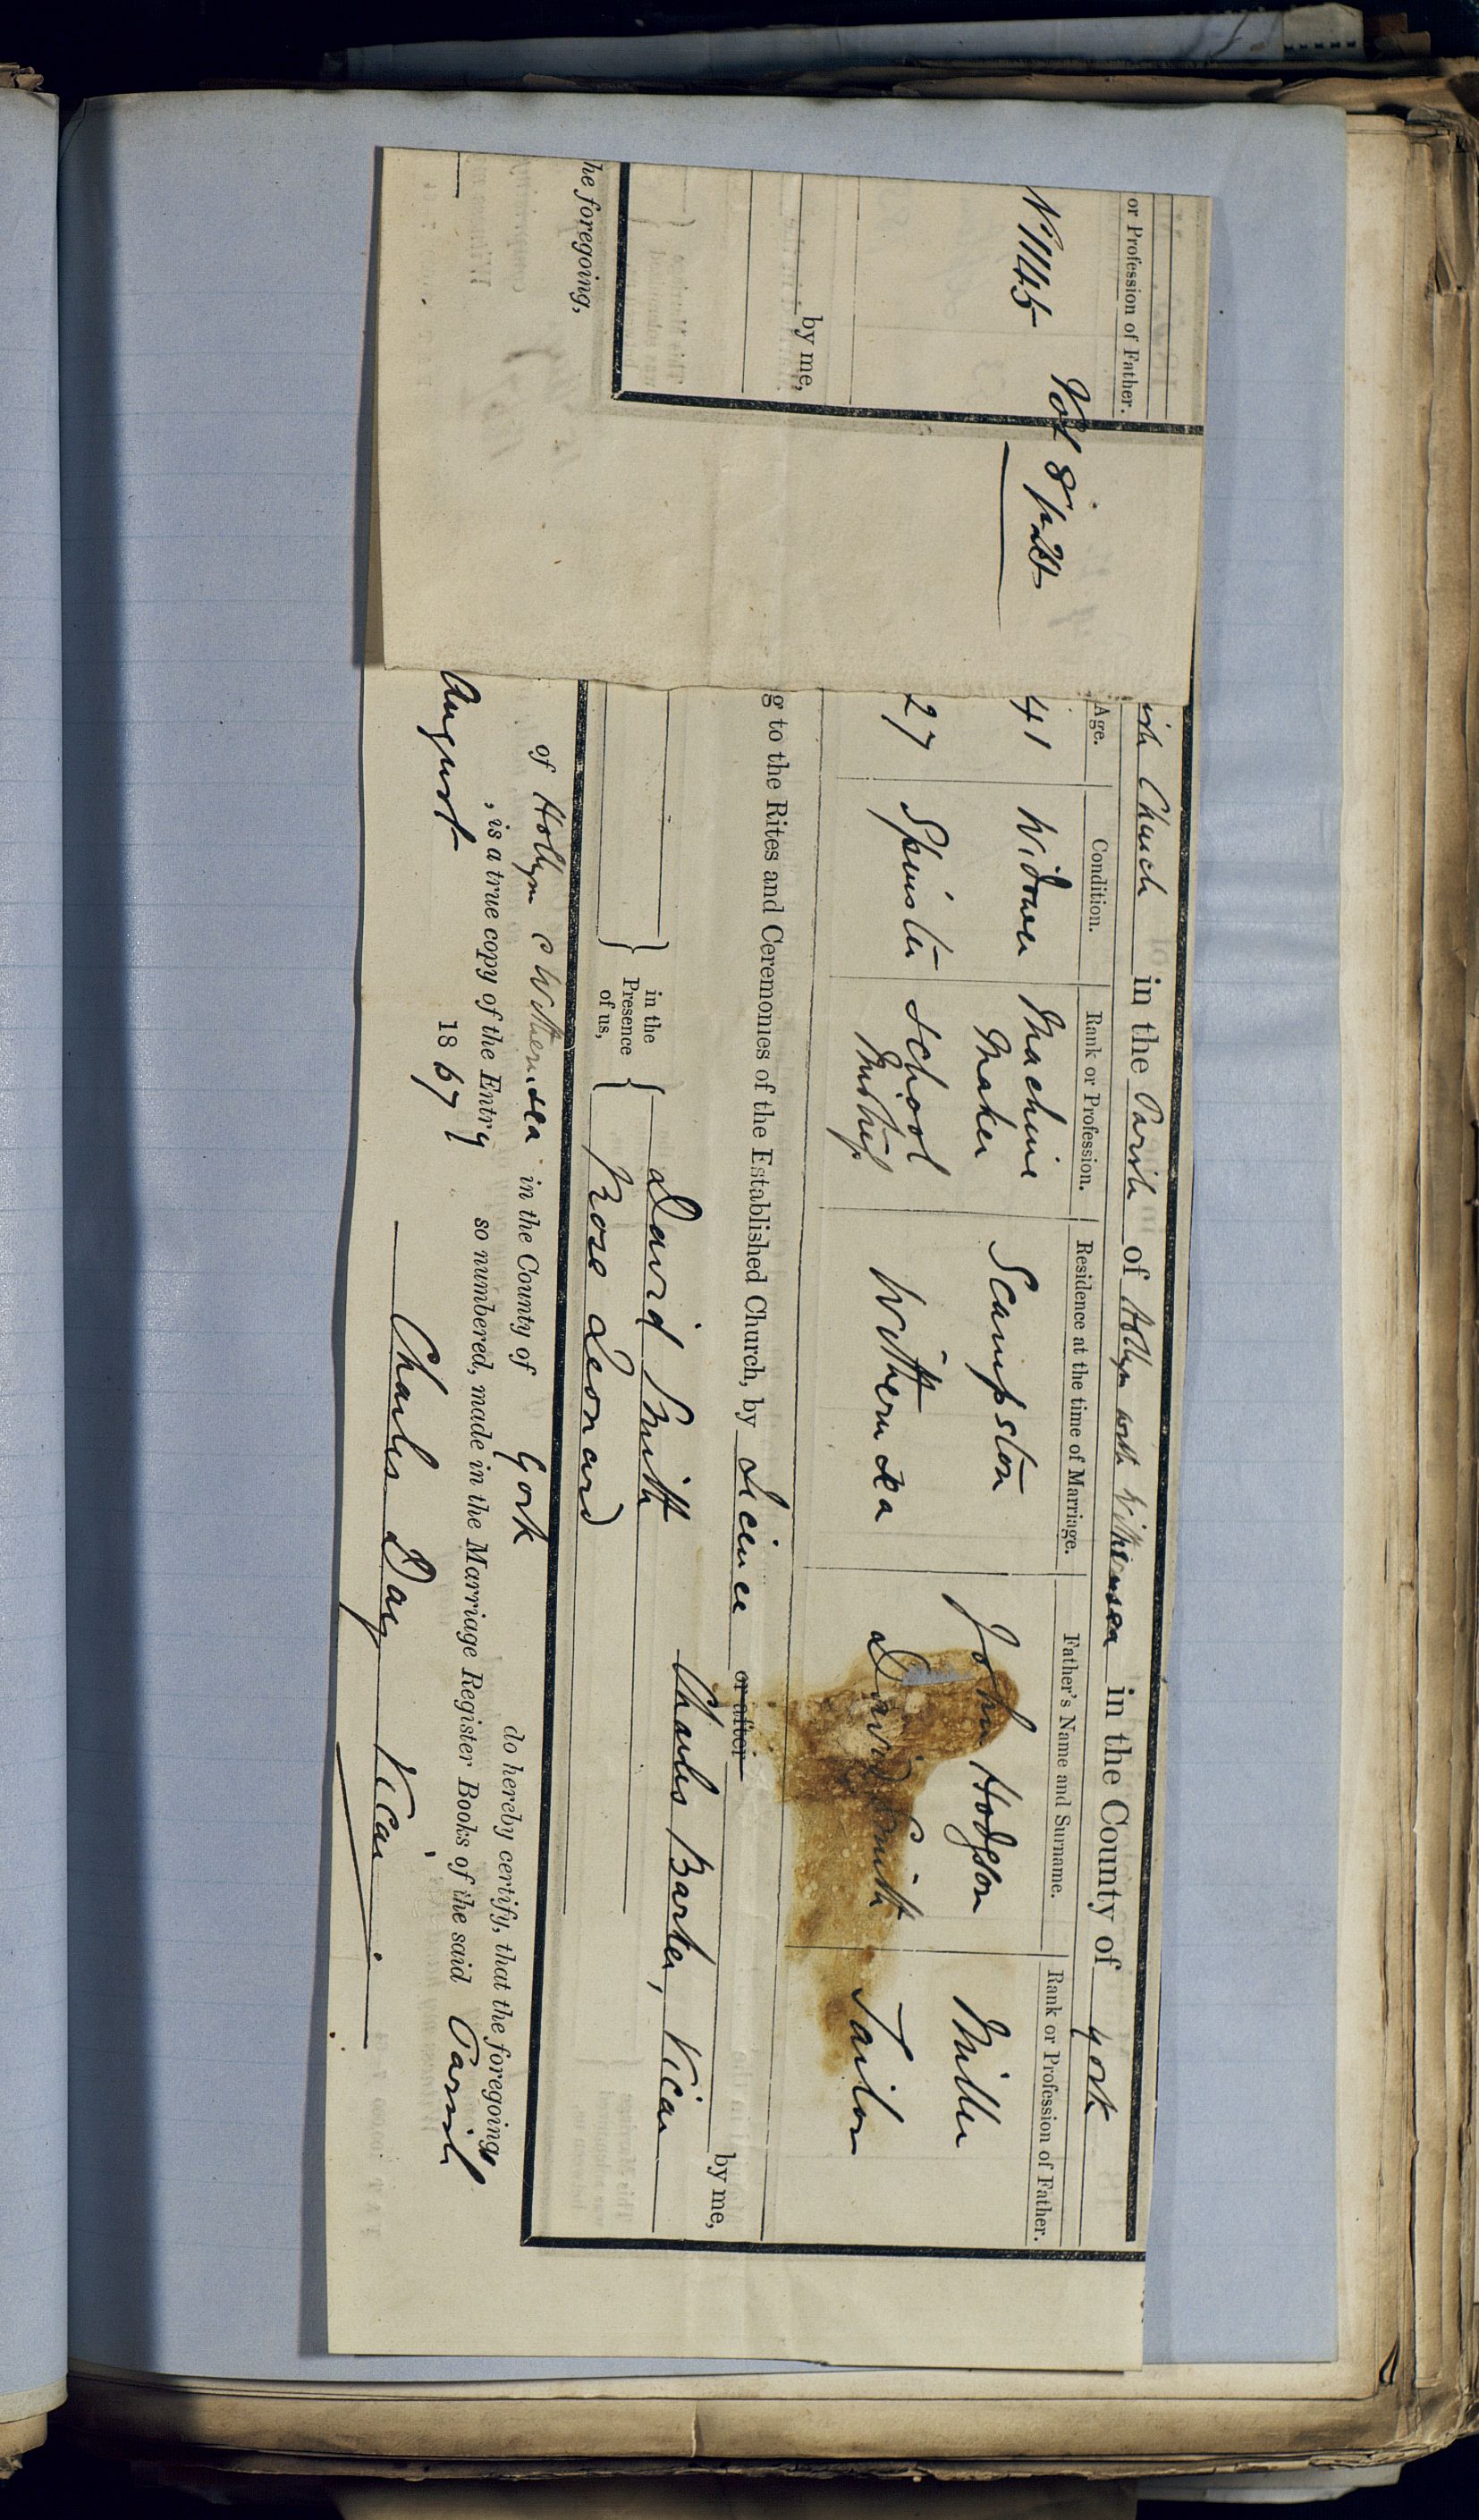 or Profession of Father.
N 1145 Vol 8
by me,
he foregoing,
Church in the Parish of Hollym with Withernsea in the County of York
Age. Condition. Rank or Profession. Residence at the time of Marriage. Father's Name and Surname. Rank or Profession of Father.
41 Widower Machine Scampston John Hodgson Miller
Maker
27 Spinster School Withernsea David Smith Tailor
Mistress
g to the Rites and Ceremonies of the Established Church, by Licence or after by me,
Charles Barker, Vicar
in the
Presence
of us,
David Smith
Rose Leonard
of Hollym c Withernsea in the County of York do hereby certify, that the foregoing
, is a true copy of the Entry so numbered, made in the Marriage Register Books of the said Parish
August 1867
Charles Day Vicar